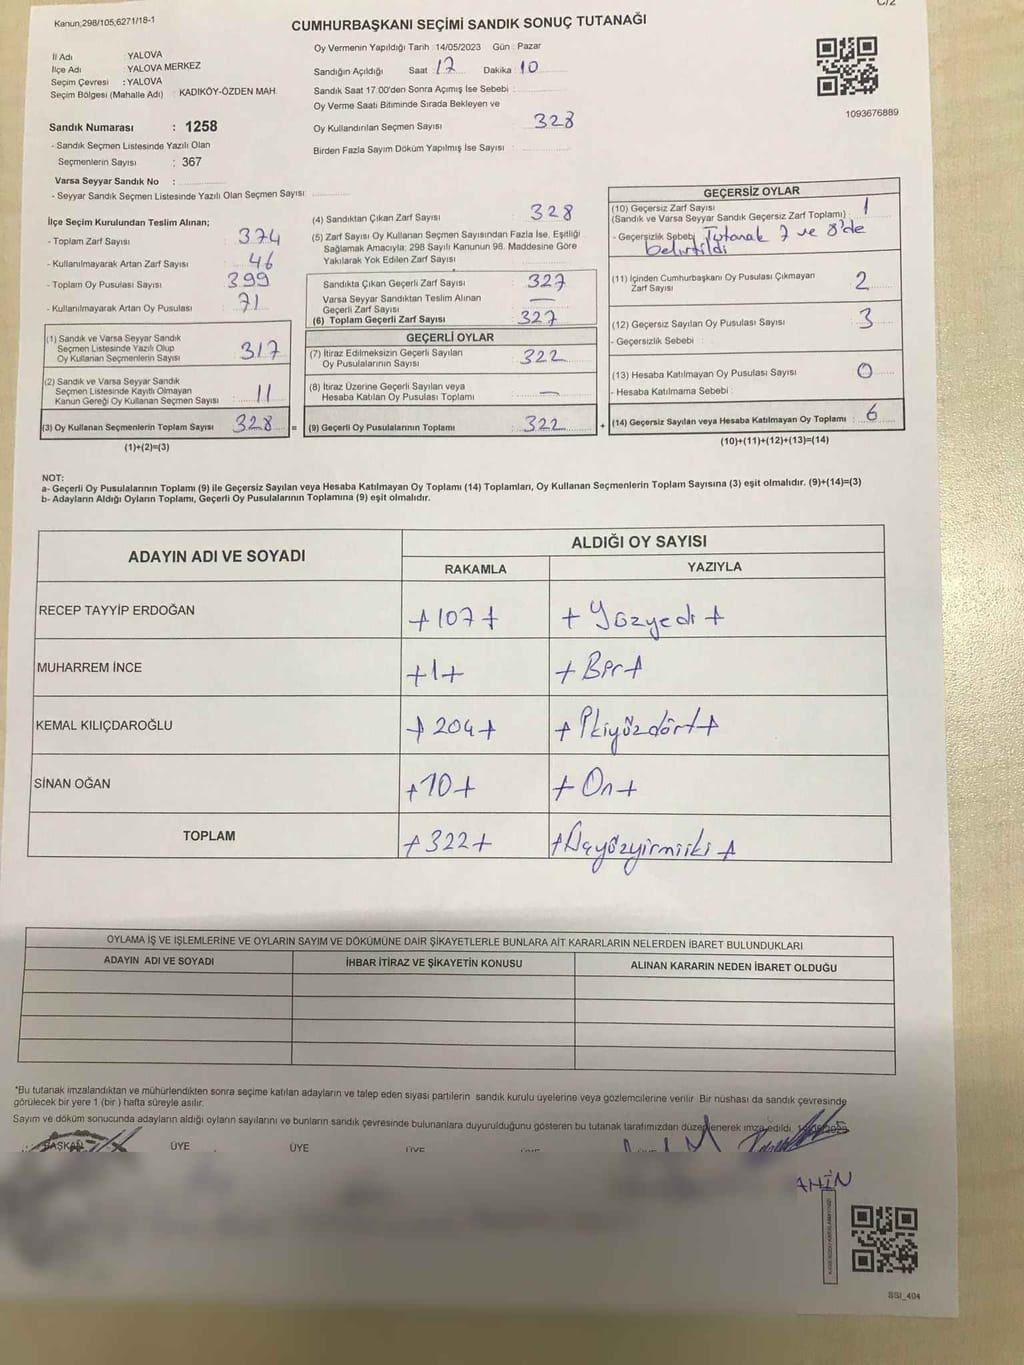 C/2
Kanun;298/105;6271/18-1
CUMHURBAŞKANI SEÇİMİ SANDIK SONUÇ TUTANAĞI
İl Adı : YALOVA
İlçe Adı : YALOVA MERKEZ
Seçim Çevresi : YALOVA
Seçim Bölgesi (Mahalle Adı) : KADIKÖY-ÖZDEN MAH.
Sandık Numarası : 1258
- Sandık Seçmen Listesinde Yazılı Olan
Seçmenlerin Sayısı : 367
Varsa Seyyar Sandık No :
- Seyyar Sandık Seçmen Listesinde Yazılı Olan Seçmen Sayısı:
Oy Vermenin Yapıldığı Tarih : 14/05/2023 Gün : Pazar
Sandığın Açıldığı Saat : 17 Dakika : 10
Sandık Saat 17.00'den Sonra Açımış İse Sebebi :
Oy Verme Saati Bitiminde Sırada Bekleyen ve
Oy Kullandırılan Seçmen Sayısı : 328
Birden Fazla Sayım Döküm Yapılmış İse Sayısı :
1093676889
İlçe Seçim Kurulundan Teslim Alınan;
- Toplam Zarf Sayısı : 374
- Kullanılmayarak Artan Zarf Sayısı : 46
- Toplam Oy Pusulası Sayısı : 399
- Kullanılmayarak Artan Oy Pusulası : 71
(1) Sandık ve Varsa Seyyar Sandık
Seçmen Listesinde Yazılı Olup
Oy Kullanan Seçmenlerin Sayısı : 317
(2) Sandık ve Varsa Seyyar Sandık
Seçmen Listesinde Kayıtlı Olmayan
Kanun Gereği Oy Kullanan Seçmen Sayısı : 11
(3) Oy Kullanan Seçmenlerin Toplam Sayısı : 328 =
(1)+(2)=(3)
(4) Sandıktan Çıkan Zarf Sayısı : 328
(5) Zarf Sayısı Oy Kullanan Seçmen Sayısından Fazla İse, Eşitliği
Sağlamak Amacıyla; 298 Sayılı Kanunun 98. Maddesine Göre
Yakılarak Yok Edilen Zarf Sayısı :
Sandıkta Çıkan Geçerli Zarf Sayısı : 327
Varsa Seyyar Sandıktan Teslim Alınan
Geçerli Zarf Sayısı : —
(6) Toplam Geçerli Zarf Sayısı : 327
GEÇERLİ OYLAR
(7) İtiraz Edilmeksizin Geçerli Sayılan
Oy Pusulalarının Sayısı : 322
(8) İtiraz Üzerine Geçerli Sayılan veya
Hesaba Katılan Oy Pusulası Toplamı : —
(9) Geçerli Oy Pusulalarının Toplamı : 322 +
GEÇERSİZ OYLAR
(10) Geçersiz Zarf Sayısı
(Sandık ve Varsa Seyyar Sandık Geçersiz Zarf Toplamı) : 1
- Geçersizlik Sebebi : Tutanak 7 ve 8'de
belirtildi
(11) İçinden Cumhurbaşkanı Oy Pusulası Çıkmayan
Zarf Sayısı : 2
(12) Geçersiz Sayılan Oy Pusulası Sayısı : 3
- Geçersizlik Sebebi :
(13) Hesaba Katılmayan Oy Pusulası Sayısı : 0
- Hesaba Katılmama Sebebi :
(14) Geçersiz Sayılan veya Hesaba Katılmayan Oy Toplamı : 6
(10)+(11)+(12)+(13)=(14)
NOT:
a- Geçerli Oy Pusulalarının Toplamı (9) ile Geçersiz Sayılan veya Hesaba Katılmayan Oy Toplamı (14) Toplamları, Oy Kullanan Seçmenlerin Toplam Sayısına (3) eşit olmalıdır. (9)+(14)=(3)
b- Adayların Aldığı Oyların Toplamı, Geçerli Oy Pusulalarının Toplamına (9) eşit olmalıdır.
ADAYIN ADI VE SOYADI ALDIĞI OY SAYISI
RAKAMLA YAZIYLA
RECEP TAYYİP ERDOĞAN +107+ +Yüzyedi+
MUHARREM İNCE +1+ +Bir+
KEMAL KILIÇDAROĞLU +204+ +İkiyüzdört+
SİNAN OĞAN +10+ +On+
TOPLAM +322+ +Üçyüzyirmiiki+
OYLAMA İŞ VE İŞLEMLERİNE VE OYLARIN SAYIM VE DÖKÜMÜNE DAİR ŞİKAYETLERLE BUNLARA AİT KARARLARIN NELERDEN İBARET BULUNDUKLARI
ADAYIN ADI VE SOYADI İHBAR İTİRAZ VE ŞİKAYETİN KONUSU ALINAN KARARIN NEDEN İBARET OLDUĞU
*Bu tutanak imzalandıktan ve mühürlendikten sonra seçime katılan adayların ve talep eden siyasi partilerin sandık kurulu üyelerine veya gözlemcilerine verilir. Bir nüshası da sandık çevresinde
görülecek bir yere 1 (bir) hafta süreyle asılır.
Sayım ve döküm sonucunda adayların aldığı oyların sayılarını ve bunların sandık çevresinde bulunanlara duyurulduğunu gösteren bu tutanak tarafımızdan düzenlenerek imza edildi.
BAŞKAN ÜYE ÜYE ÜYE
AHİN
SSI_404